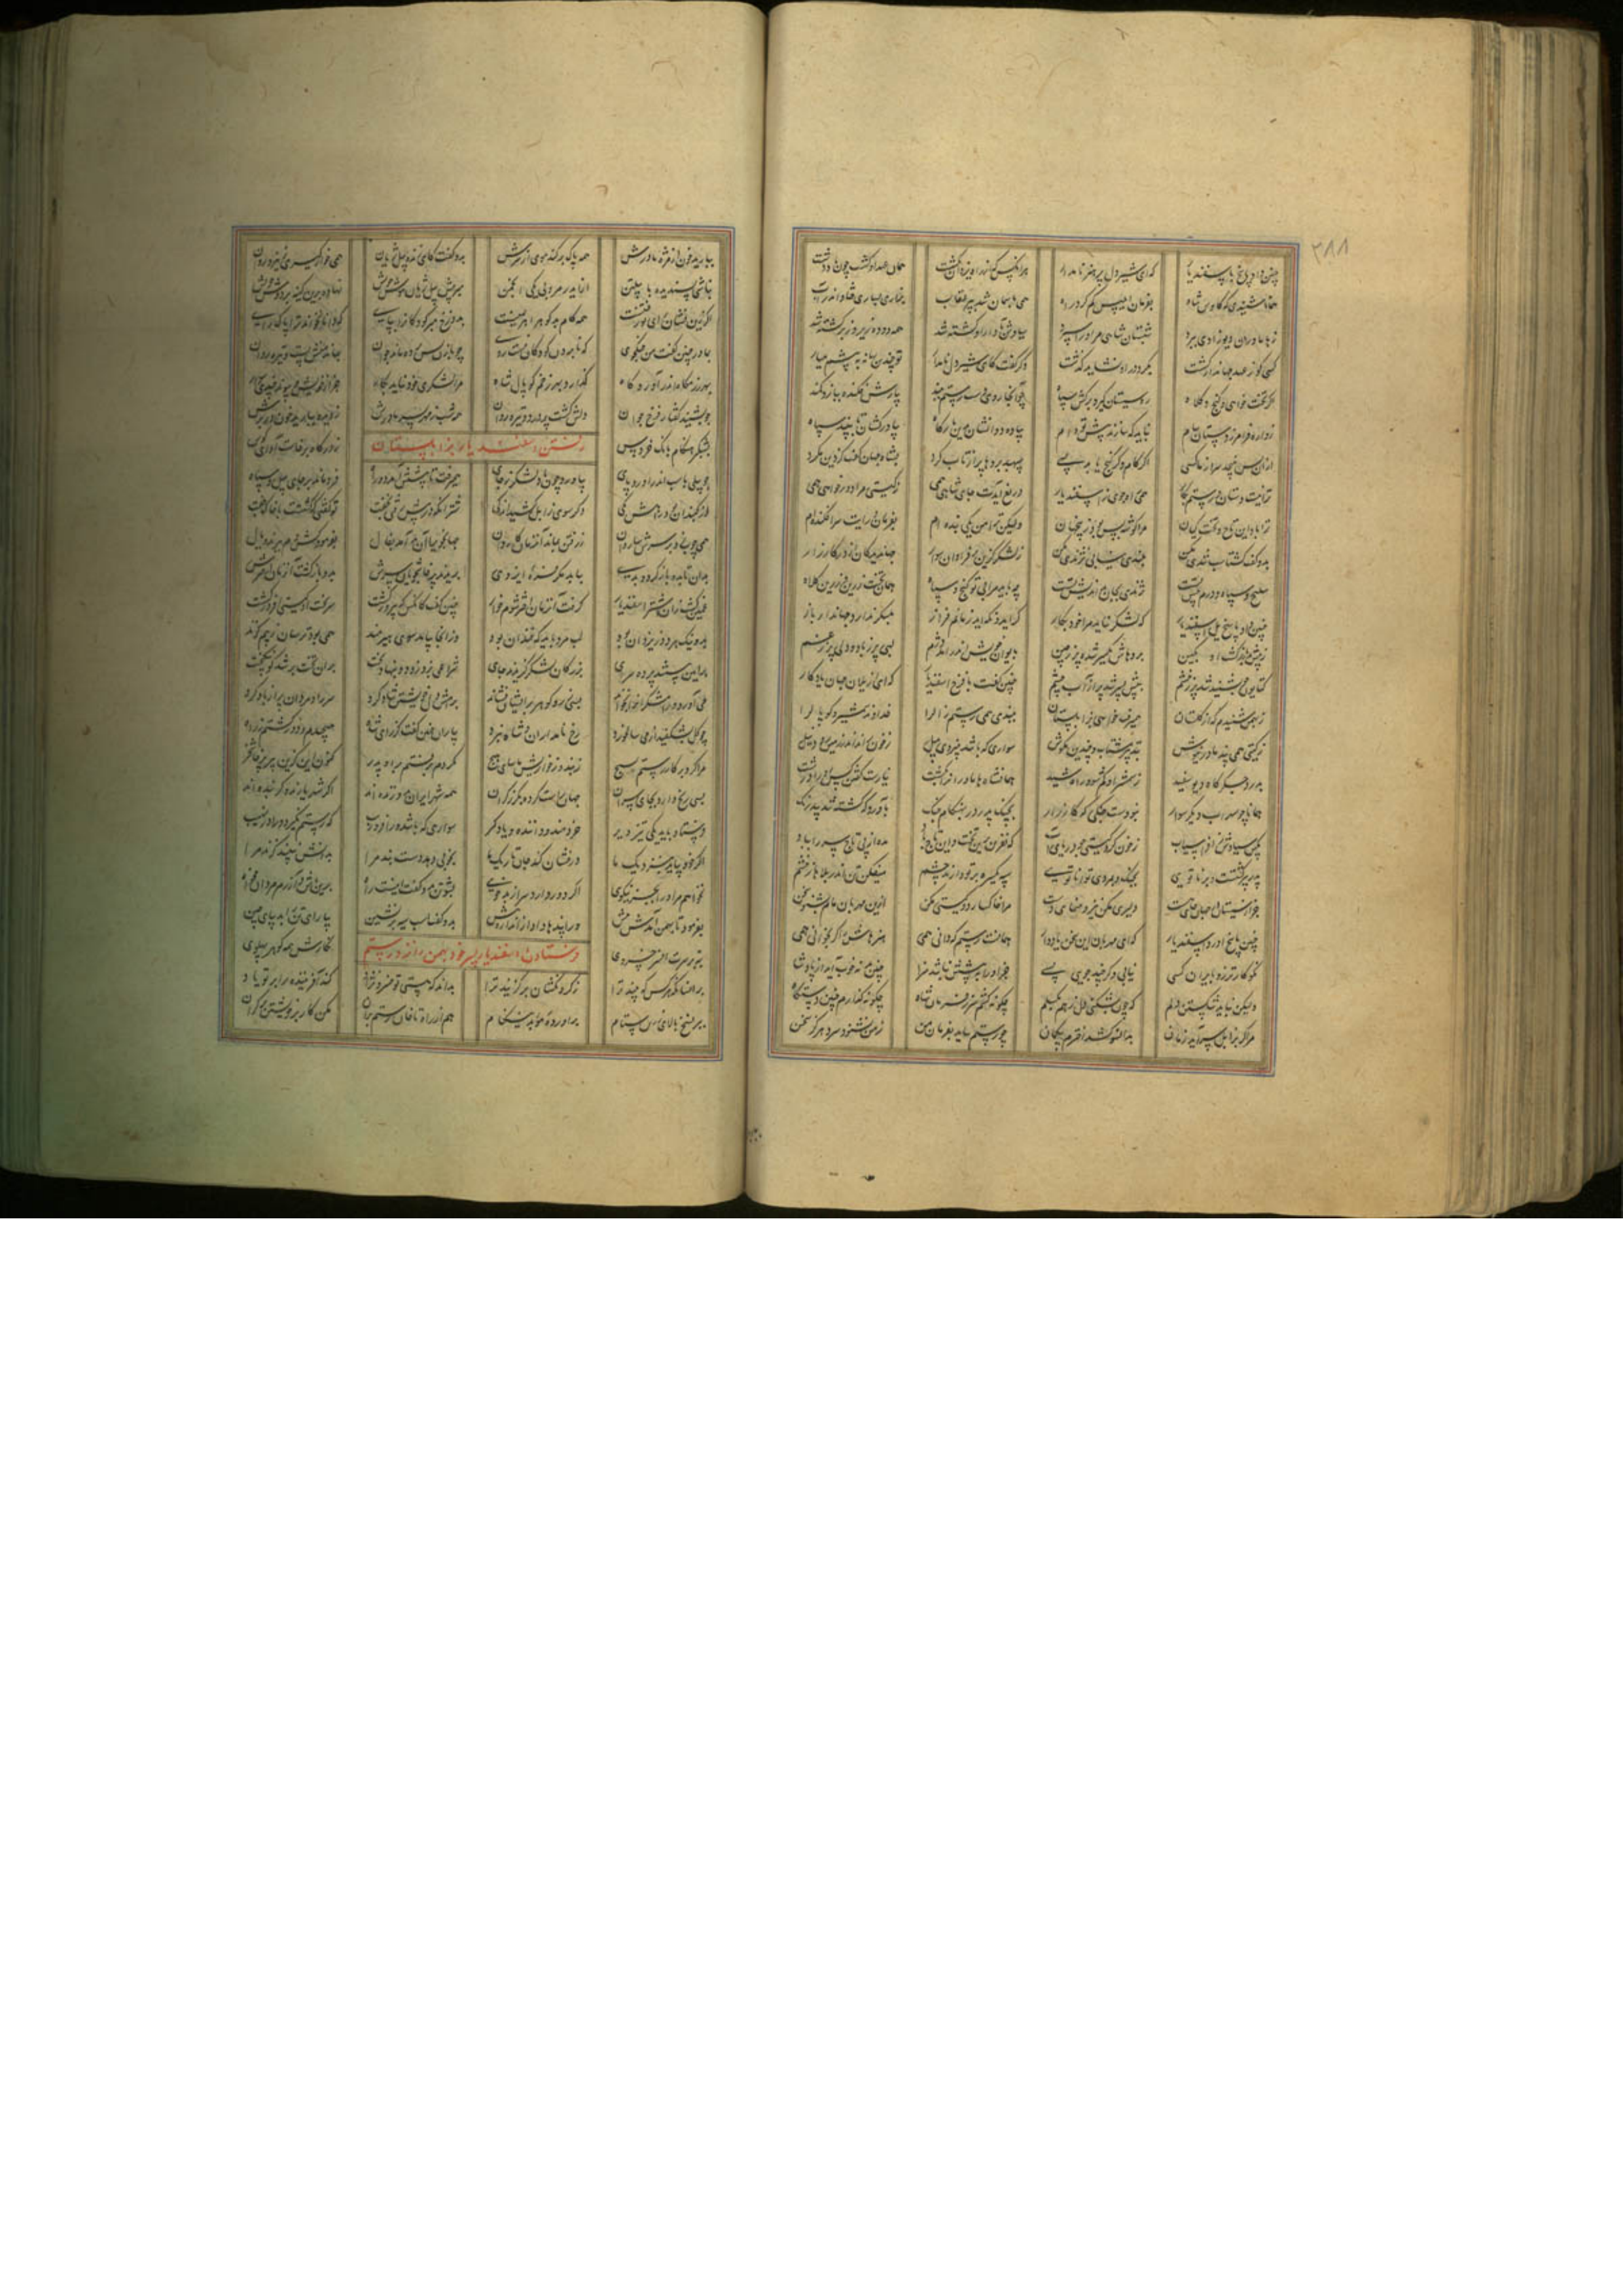 ۳۸۸
چنین داد پاسخ باسفندیار که ای شیر دل پر هنر نامدار هر آنکس که از راه یزدان بگشت همان عهد او گشت چون باد دشت
همانا شنیدی که کاوس شاه بفرمان ابلیس گم کرد راه همی بآسمان شد بپر عقاب بزاری بساری فتاد اندر آب
ز هاماوران دیوزادی ببرد شبستان شاهی مر او را سپرد سیاوش بآزار او کشته شد همه دوده زیر و زبر گشته شد
کسی کو ز عهد جهاندار گشت بگرد در او نشاید گذشت دگر گفت کای شیردل نامدار تو چندین بهانه به پیشم میار
اگر تخت خواهی و گنج و کلاه ره سیستان گیر و برکش سپاه چو آنجا روی دست رستم ببند بیارش فکنده ببازو کمند
زواره فرامرز و دستان سام نباید که سازند پیش تو دام پیاده دوانشان بدین بارگاه بیاور کشان تا ببیند سپاه
ازان پس نپیچد سر از ما کسی اگر کام و گر گنج یابد بسی سپهبد بروها پر از تاب کرد بشاه جهان گفت کزین بازگرد
ترا نیست دستان و رستم بکار همی راه جویی ز اسفندیار دریغ آیدت جای شاهی همی ز گیتی مرا دور خواهی همی
ترا باد این تاج و تخت کیان مرا گوشه بس بود زین جهان ولیکن ترا من یکی بنده ام بفرمان و رایت سرافکنده ام
بدو گفت گشتاسب تندی مکن بلندی بیابی نژندی مکن ز لشکر گزین کن فراوان سوار جهاندیدگان از در کارزار
سلیح و سپاه و درم پیش تست نژندی بجان بداندیش تست چه باید مرا بی تو گنج و سپاه همان تخت زرین و زرین کلاه
چنین داد پاسخ یل اسفندیار که لشکر نیاید مرا خود بکار گر ایدونکه آید زمانم فراز بلشکر ندارد جهاندار باز
ز پیش پدر گشت بایوان خویش اندر آمد دژم لبی پر ز باد و دلی پر ز غم
کتایون چو بشنید شد پر ز خشم بپیش پسر شد پر از آب چشم چنین گفت با فرخ اسفندیار که ای از یلان جهان یادگار
ز بهمن شنیدم که از گلستان همی رفت خواهی بزابلستان ببندی همی رستم زال را خداوند شمشیر و کوپال را
ز گیتی همی پند مادر نیوش به بد تیز مشتاب و چندین مکوش سواری که باشد بنیروی پیل ز خون راند اندر زمین رود نیل
بدرد جگرگاه دیو سپید ز شمشیر او گم کند راه شید همان شاه هاماوران را بکشت نیارست گفتن کس او را درشت
همانا چو سهراب دیگر سوار نبودست جنگی گه کارزار بچنگ پدر در بهنگام جنگ بآورد گه کشته شد بیدرنگ
بکین سیاوش ز افراسیاب ز خون کرد گیتی چو دریای آب که نفرین برین تخت و این تاج باد مده از پی تاج سر را بباد
پدر پیر گشتست و برنا تویی بجنگ و بمردی توانا تویی سپه یکسره بر تو دارند چشم میفکن تن اندر بلاها ز خشم
جز از سیستان در جهان جای هست دلیری مکن تیز و منمای دست مرا خاکسار دو گیتی مکن ازین مهربان مام بشنو سخن
چنین پاسخ آوردش اسفندیار که ای مهربان این سخن یاد دار همانست رستم که دانی همی هنرهاش اگر بخوانی همی
نکوکارتر زو بایران کسی نیابی و گر چند جویی بسی چو او را ببستن نباشد سزا چنین بد نه خوب آید از پادشا
ولیکن نباید شکستن دلم که چون بشکنی دل ز هم بگسلم چگونه کشم سر ز فرمان شاه چگونه گذارم چنین دستگاه
مرا گر بزابل سرآید زمان بدانسو کشد اخترم بیگمان چو رستم بیاید بفرمان من ز من نشنود سرد هرگز سخن
ببارید خون از مژه مادرش همه پاک بر کند موی از سرش بدو گفت کای زنده پیل ژیان همی خوار گیری ز نیرو روان
نباشی بسنده با پیلتن از ایدر مرو بی یکی انجمن مبر پیش پیل ژیان هوش خویش نهاده برین گونه بر دوش خویش
اگر زین نشان رای تو رفتنست همه کام بدگوهر اهرمنست بدوزخ مبر کودکان را بپای که دانا نخواند ترا پاک رای
بمادر چنین گفت پس جنگجوی که نابردن کودکان نیست روی چو با زن پس پرده باشد جوان بماند منش پست و تیره روان
بهر رزمگاه اندر گذارد بهر زخم کوپال شاه مرا لشکری خود نیاید بکار جز از خویش و پیوند و چندی سوار
چو بشنید گفتار فرخ جوان دلش گشت پردرد و تیره روان همه شب ز مهر پسر مادرش ز دیده ببارید خون بر برش
رفتن اسفندیار بزابلستان
بشبگیر هنگام بانگ خروس ز درگاه برخاست آوای کوس
چو پیلی باسب اندر آورد پای بیاورد چون باد لشکر ز جای همی رفت تا پیشش آمد دو راه فرو ماند بر جای پیل و سپاه
دژ گنبدان بود راهش یکی دگر سوی زابل کشید اندکی شتر آنکه در پیش بودی بخفت تو گفتی که گشتست با خاک جفت
همی چوب زد بر سرش ساروان ز رفتن بماند آنزمان کاروان جهانجوی را آن بد آمد بفال بفرمود کش سر ببرند و یال
بدان تا بدو باز گردد بدی نباید بجز فره ایزدی بریدند پرخاشجویان سرش بدو باز گشت آنزمان اخترش
غمی گشت زان اشتر اسفندیار گرفت آنزمان اختر شوم خوار چنین گفت کانکس که پیروز گشت سر بخت او گیتی افروز گشت
بد و نیک هر دو ز یزدان بود لب مرد باید که خندان بود وز آنجا بیامد سوی هیرمند همی بود ترسان ز بیم گزند
بر آیین ببستند پرده سرای بزرگان لشکر گزیدند جای شراعی بزد زود و بنهاد تخت بران تخت بر شد گو نیکبخت
می آورد و رامشگران را بخواند بسی زر و گوهر بریشان فشاند برامش دل خویشتن شاد کرد سر راد مردان پر از یاد کرد
چو گل بشکفید از می سالخورد رخ نامداران و شاه نبرد بیاران چنین گفت کز رای شاه نپیچیدم و دور گشتم ز راه
مرا گفت بر کار رستم بسیج ز بند و ز خواریش میاسای هیچ نکردم نرفتم براه پدر کنون این گزین پیر پرخاشخر
بسی رنج دارد بجای سران جهان راست کرده بگرز گران همه شهر ایران بدو زنده اند اگر شهریارند و گر بنده اند
فرستاده باید یکی تیز ویر خردمند و داننده و یادگیر سواری که باشد ورا فر و زیب که رستم نگیرد مر او را فریب
گر ایدونکه آید بنزدیک ما درفشان کند جان تاریک ما بخوبی دهد دست بند مرا بدانش ببندد گزند مرا
نخواهم مر او را بجز نیکوی اگر دور دارد سر از بدخوی پشوتن بدو گفت اینست راه برین باش و آزرم مردان بخواه
بفرمود تا بهمن آمدش پیش ورا پندها داد از اندازه بیش بدو گفت اسب سیه برنشین بیارای تن را بدیبای چین
فرستادن اسفندیار پسر خود بهمن را نزد رستم
بنه بر سرت افسر خسروی نگارش همه گوهر پهلوی
بر آنسان که هر کس که بیند ترا ز گردنکشان برگزیند ترا بداند که هستی تو خسرو نژاد کند آفریننده را بر تو یاد
ببر پنج بالای زرین ستام بیاور ده موبد نیکنام هم از راه تا خان رستم بران مکن کار بر خویشتن بر گران